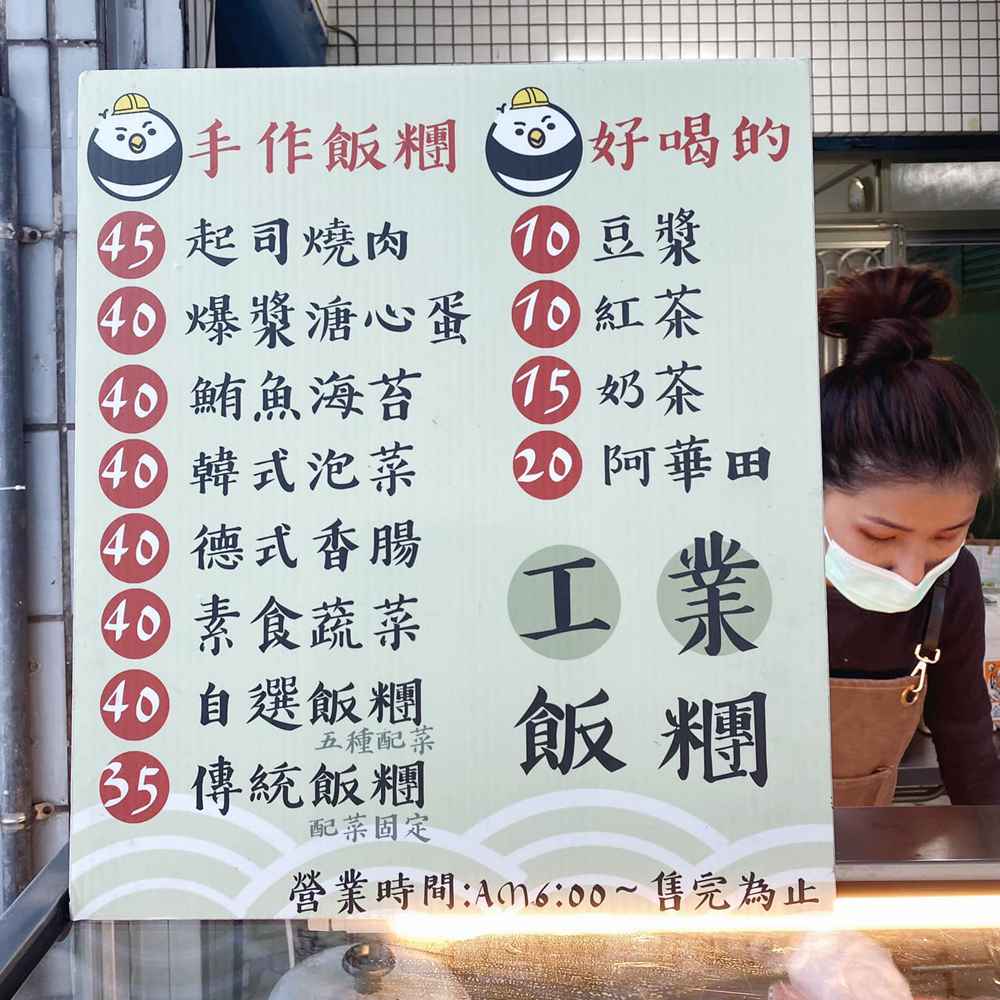 手作飯糰
45 起司燒肉
40 爆漿溏心蛋
40 鮪魚海苔
40 韓式泡菜
40 德式香腸
40 素食蔬菜
40 自選飯糰
五種配菜
35 傳統飯糰
配菜固定
好喝的
10 豆漿
10 紅茶
15 奶茶
20 阿華田
工業
飯糰
營業時間:AM6:00~售完為止